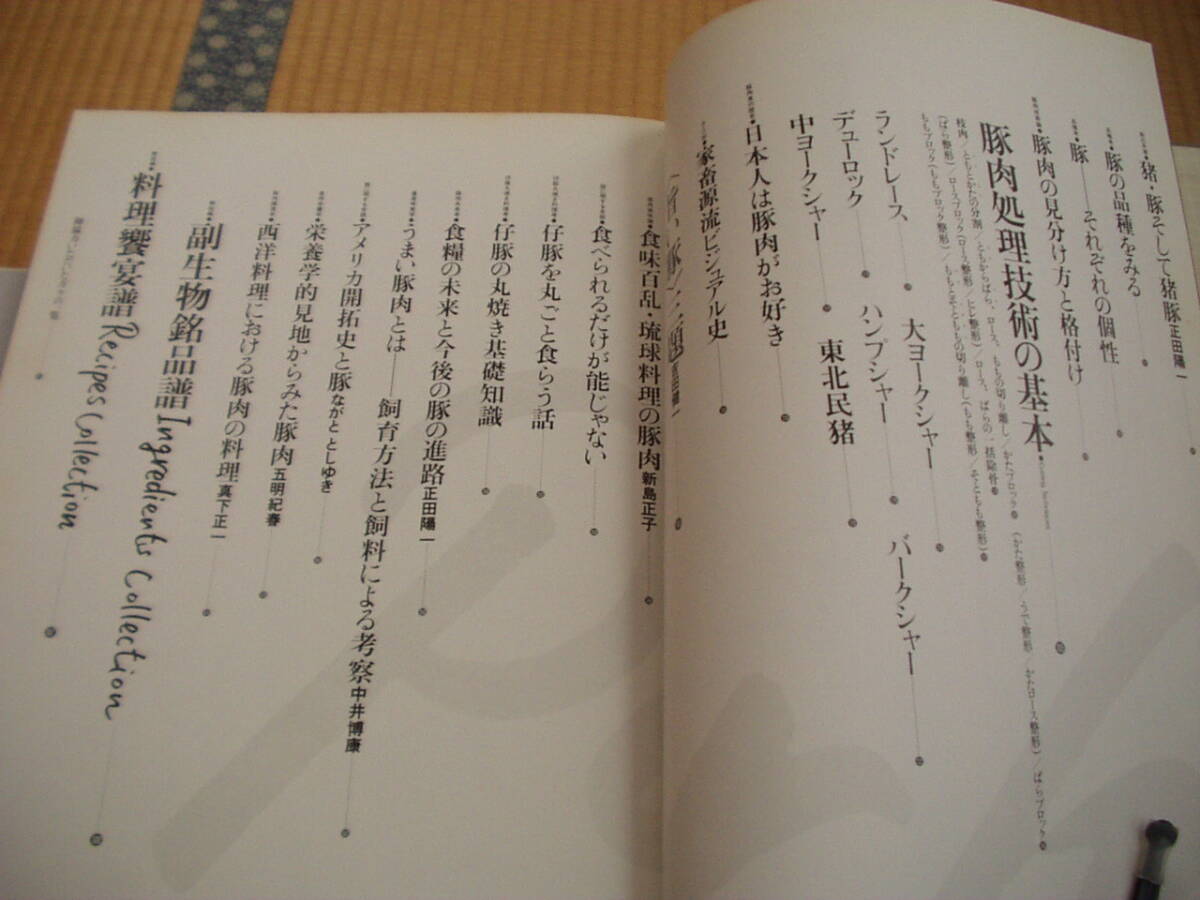 猪・豚そして猪豚 正田陽一
豚の品種をみる
豚――それぞれの個性
豚肉の見分け方と格付け
豚肉処理技術の基本
枝肉／ともとかたの分割／ともからばら、ロース、ももの切り離し／かたブロック（かた整形／うで整形／かたロース整形）／ばらブロック
（ばら整形）／ロースブロック（ロース整形／ヒレ整形）／ロース、ばらの一括除骨
ももブロック（ももブロック整形）／ももとそとももの切り離し（もも整形／そともも整形）
ランドレース
大ヨークシャー
バークシャー
デューロック
ハンプシャー
中ヨークシャー
東北民猪
日本人は豚肉がお好き
家畜源流ビジュアル史
食味百乱・琉球料理の豚肉 新島正子
食べられるだけが能じゃない
仔豚を丸ごと食らう話
仔豚の丸焼き基礎知識
食糧の未来と今後の豚の進路 正田陽一
うまい豚肉とは――飼育方法と飼料による考察 中井博康
アメリカ開拓史と豚 ながと としゆき
栄養学的見地からみた豚肉 五明紀春
西洋料理における豚肉の料理 真下正一
副生物銘品譜 Ingredients Collection
料理饗宴譜 Recipes Collection